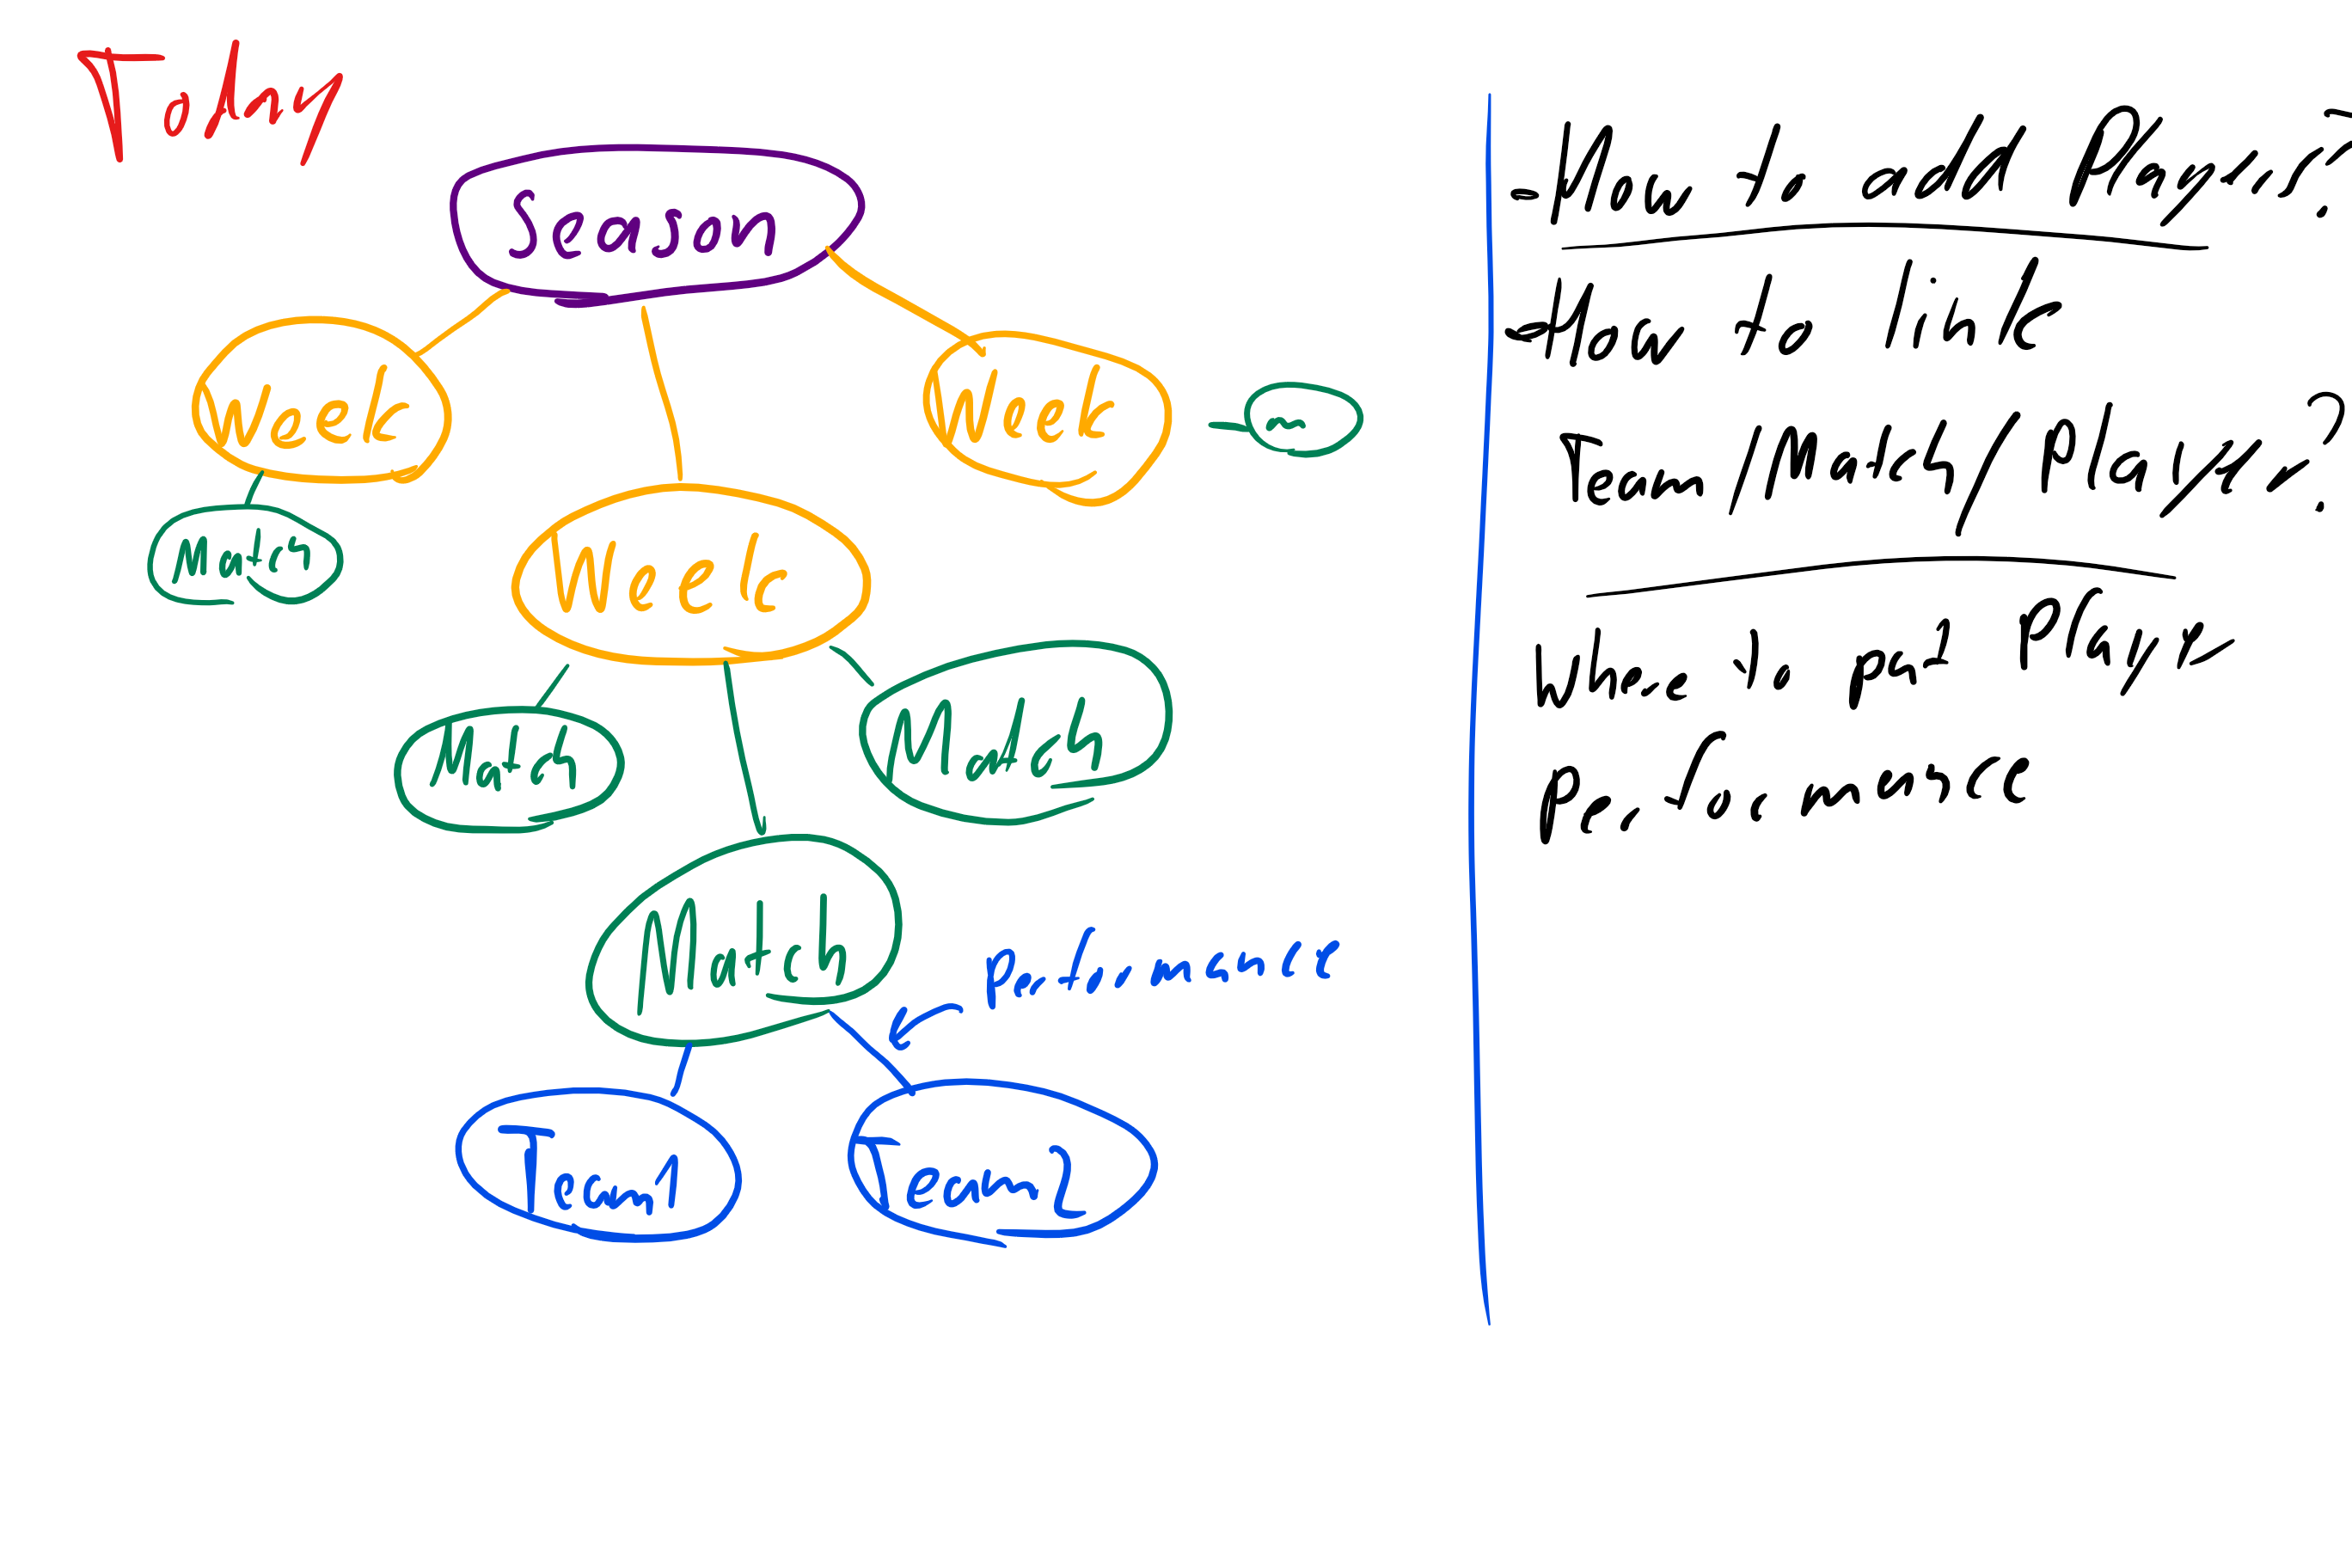 Today
Season
Week
Week
Week
Match
Match
Match
Match
Performance
Team 1
Team 2
- How to add Player?
- How to link
Team/Match/Player?
Where to put Player
performance